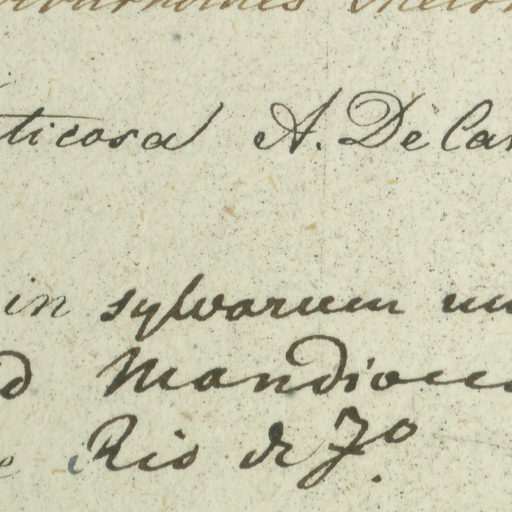 ticosa A. De Can
in sylvarum um
d Mandiocca
Rio de Jo.